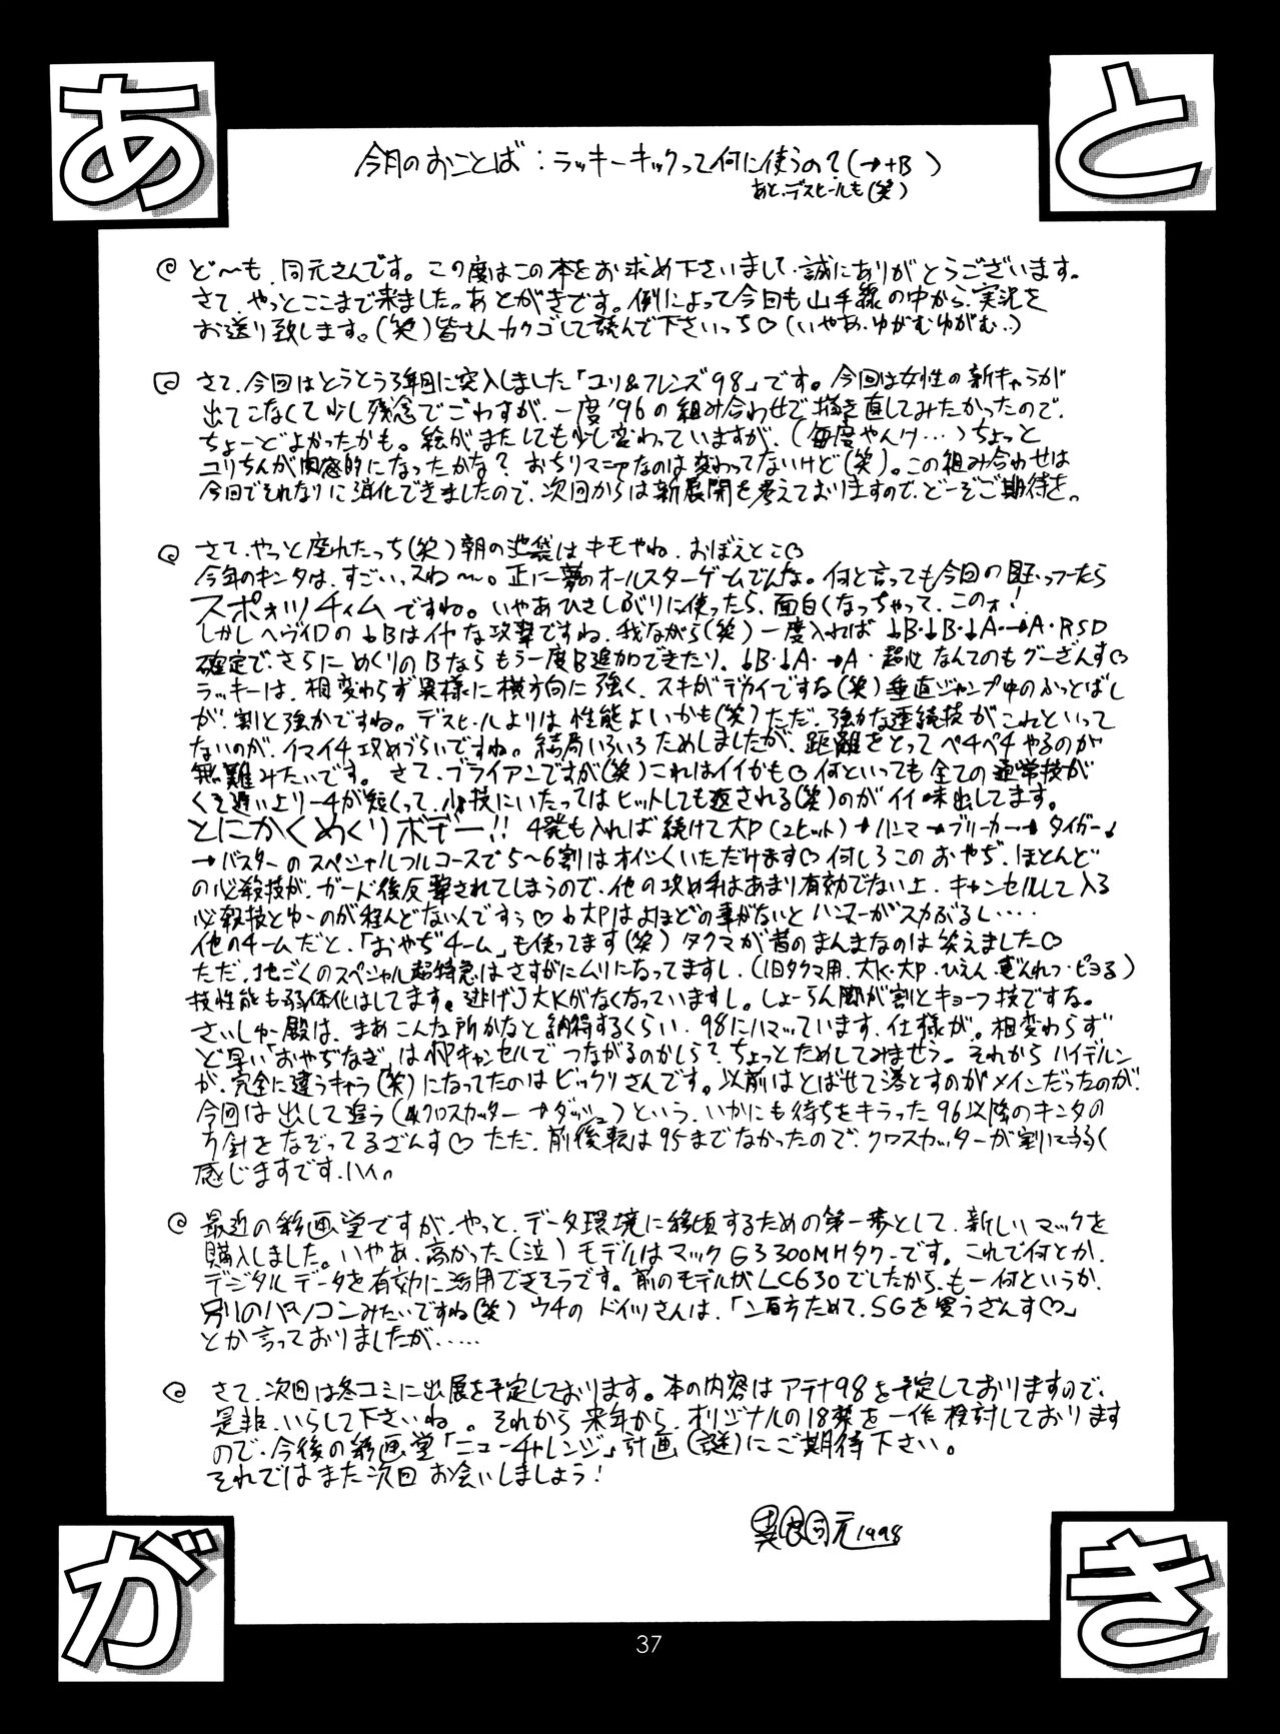 あ
と
今月のおことば：ラッキーキックって何に使うの？(→+B )
あと、デスヒールも(笑)
ど〜も、同元さんです。この度はこの本をお求め下さいまして、誠にありがとうございます。
さて、やっとここまで来ました。あとがきです。例によって今回も山手線の中から、実況を
お送り致します。(笑)皆さんカクゴして読んで下さいっち♡(いやあ、ゆがむゆがむ‥)
さて、今回はとうとう3年目に突入しました「ユリ&フレンズ98」です。今回は女性の新キャラが
出てこなくて少し残念でごわすが、一度'96の組み合わせで描き直してみたかったので、
ちょーどよかったかも。絵がまたしても少し変わっていますが、(毎度やんけ…)ちょっと
ユリちんが肉感的になったかな？おちりマニアなのは変わってないけど(笑)。この組み合わせは
今回でそれなりに消化できましたので、次回からは新展開を考えておりますので、どーぞご期待を。
さて、やっと座れたっち(笑)朝の池袋はキモやね、おぼえとこ♡
今年のキンタは、すごいっスね〜。正に夢のオールスターゲームでんな。何と言っても今回の目玉っつーたら
スポォツチィムですね。いやあひさしぶりに使ったら、面白くなっちゃって、このォ！
しかしヘヴィDの↓Bはイヤな攻撃ですね、我ながら(笑)一度入れば↓B・↓B・↓A・→A・RSD
確定で、さらにめくりのBならもう一度B追加できたり。↓B・↓A・→A・超必なんてのもグーざんす♡
ラッキーは、相変わらず異様に横方向に強く、スキがデカイでする(笑)垂直ジャンプ中のふっとばし
が、割と強かですね。デスヒールよりは性能よいかも(笑)ただ、強力な連続技がこれといって
ないのが、イマイチ攻めづらいですね。結局いろいろためしましたが、距離をとってペチペチやるのが
無難みたいです。さて、ブライアンですが(笑)これはイイかも♡何といっても全ての通常技が
くそ遅い上リーチが短くって、小技にいたってはヒットしても返される(笑)のがイイ味出してます。
とにかくめくりボデー!!4発も入れば続けて大P(2ヒット)→ハンマ→ブリーカー→タイガー↓
→バスターのスペシャルフルコースで5〜6割はオイシくいただけます♡何しろこのおやぢ、ほとんど
の必殺技が、ガード後反撃されてしまうので、他の攻め手はあまり有効でない上、キャンセルして入る
必殺技とゆーのが殆んどないんですぅ♡大Pはよほどの事がないとハンマーがスカぶるし‥‥
他のチームだと、「おやぢチーム」も使ってます(笑)タクマが昔のまんまなのは笑えました♡
ただ、地ごくのスペシャル超特急はさすがにムリになってますし、(旧タクマ用、大K・大P・ひえん・ざんれつ・ピヨる)
技性能も弱体化はしてます。逃げJ大Kがなくなっていますし。しょーらん脚が割とキョーフ技でする。
さいしゅー殿は、まあこんな所かなと納得するくらい、98にハマッています、仕様が。相変わらず
ど早い「おやぢなぎ」は小Pキャンセルでつながるのかしら？ちょっとためしてみませう。それからハイデルン
が、完全に違うキャラ(笑)になってたのはビックリさんです。以前はとばせて落とすのがメインだったのが、
今回は出して追う(クロスカッター→ダッシュ)という、いかにも待ちをキラった96以降のキンタの
方針をなぞってるざんす♡ただ、前後転は95までなかったので、クロスカッターが割に弱く
感じますです、ハイ。
最近の彩画堂ですが、やっと、データ環境に移頃するための第一歩として、新しいマックを
購入しました。いやあ、高かった(泣)モデルはマックG3 300MHタワーです。これで何とか、
デジタルデータを有効に活用できそうです。前のモデルがLC630でしたから、も一何というか、
別のパソコンみたいですね(笑)ウチのドイツさんは、「二百万ためて、SGを買うざんす♡」
とか言っておりましたが‥‥‥
さて、次回は冬コミに出展を予定しております。本の内容はアテナ98を予定しておりますので、
是非、いらして下さいね。それから来年から、オリジナルの18禁を一作検討しております
ので、今後の彩画堂「ニューチャレンジ」計画(謎)にご期待下さい。
それではまた次回お会いしましょう！
異良同元1998
が
き
37